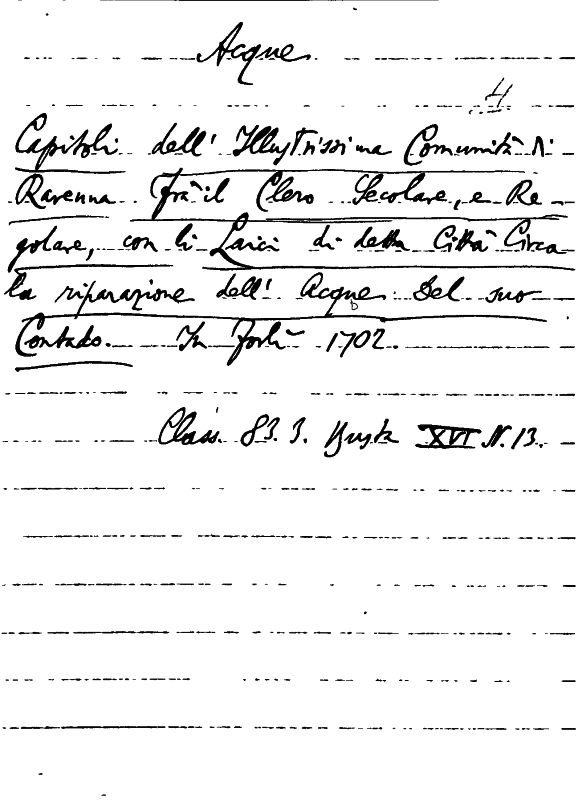 Acque
4
Capitoli dell' Illustrissima Comunità di
Ravenna Frà il Clero Secolare, e Re-
golare, con li Laici di detta Città Circa
la riparazione dell' Acque del suo
Contado. In Forlì 1702.
Class. 83.3. Busta XVI N. 13.